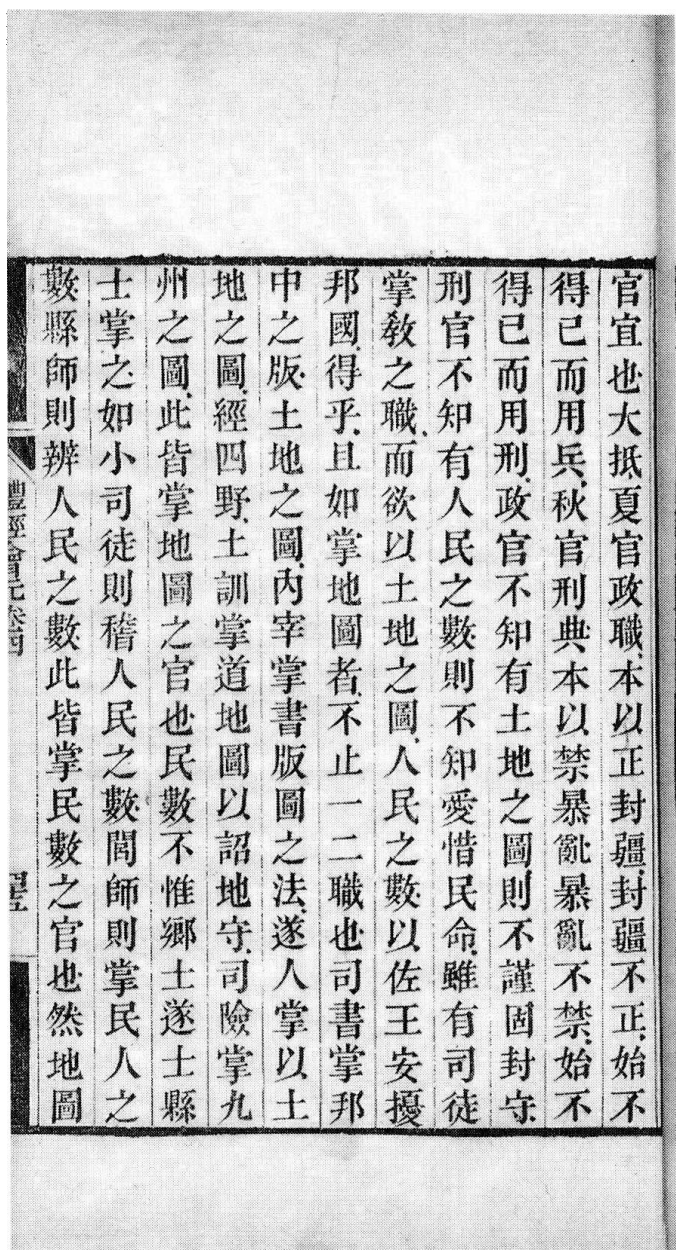 官宜也大抵夏官政職、本以正封疆、封疆不正、始不
得已而用兵、秋官刑典本以禁暴亂、暴亂不禁、始不
得已而用刑、政官不知有土地之圖、則不謹固封守、
刑官不知有人民之數則不知愛惜民命、雖有司徒
掌敎之職、而欲以土地之圖、人民之數以佐王安擾
邦國、得乎、且如掌地圖者、不止一二職也、司書掌邦
中之版、土地之圖、內宰掌書版圖之法、遂人掌以土
地之圖、經四野、土訓掌道地圖以詔地守、司險掌九
州之圖、此皆掌地圖之官也、民數不惟鄉士遂士縣
士掌之、如小司徒則稽人民之數閭師則掌民人之
數縣師則辨人民之數此皆掌民數之官也然地圖
禮經會元卷四
四五